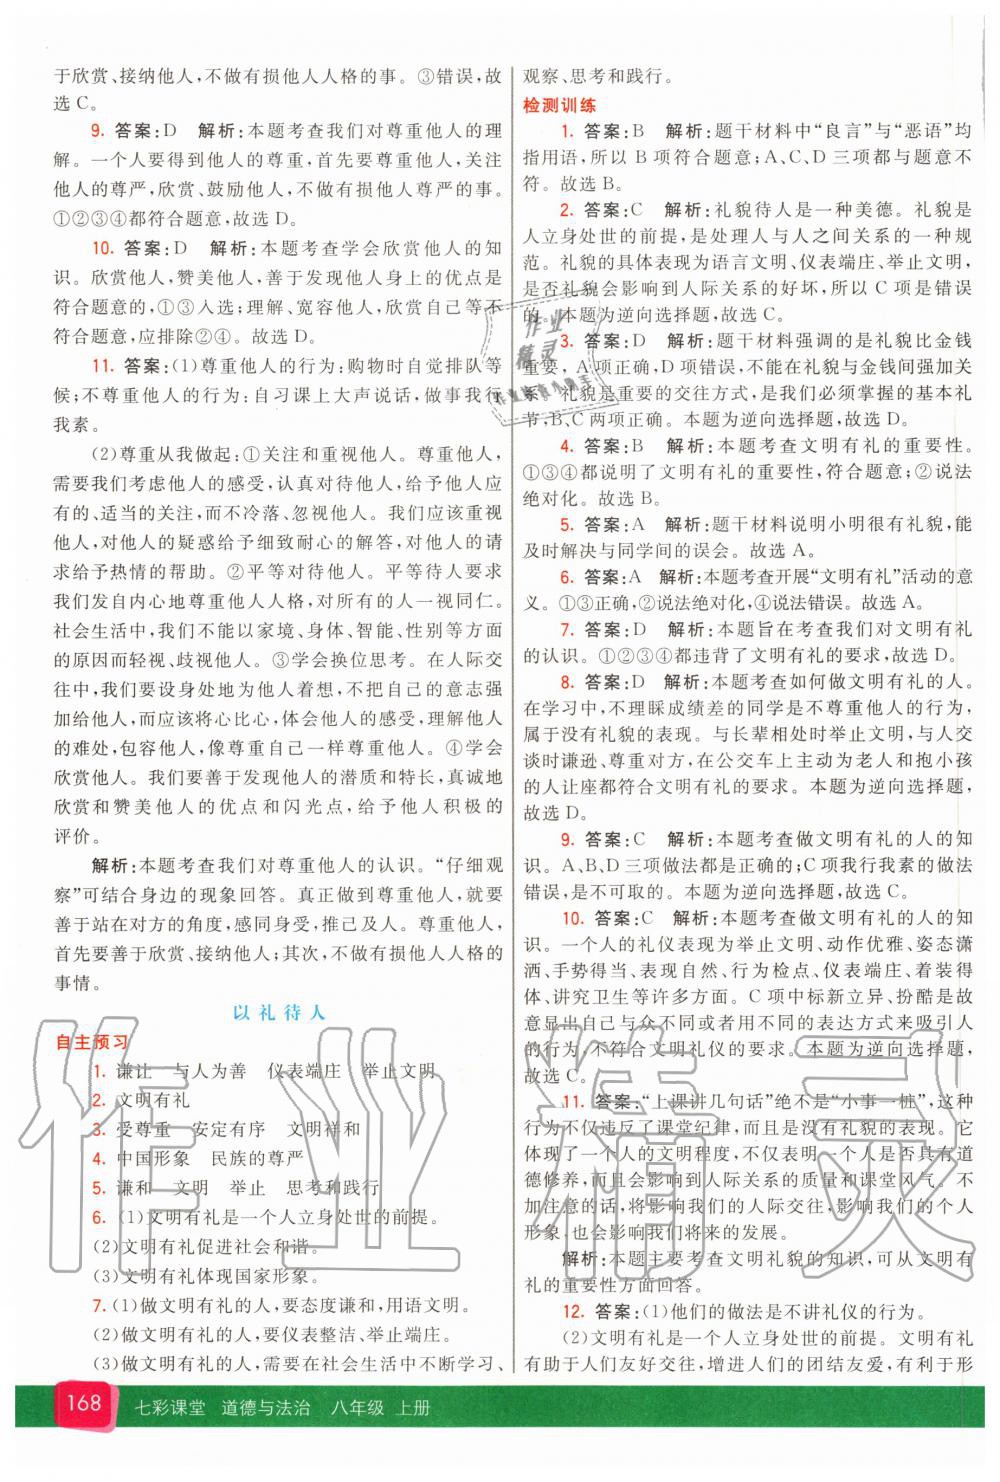 于欣赏、接纳他人,不做有损他人人格的事。③错误,故
选 C。
9. 答案:D 解析:本题考查我们对尊重他人的理
解。一个人要得到他人的尊重,首先要尊重他人,关注
他人的尊严,欣赏、鼓励他人,不做有损他人尊严的事。
①②③④都符合题意,故选 D。
10. 答案:D 解析:本题考查学会欣赏他人的知
识。欣赏他人,赞美他人,善于发现他人身上的优点是
符合题意的,①③入选;理解、宽容他人,欣赏自己等不
符合题意,应排除②④。故选 D。
11. 答案:(1)尊重他人的行为:购物时自觉排队等
候;不尊重他人的行为:自习课上大声说话,做事我行
我素。
(2)尊重从我做起:①关注和重视他人。尊重他人,
需要我们考虑他人的感受,认真对待他人,给予他人应
有的、适当的关注,而不冷落、忽视他人。我们应该重视
他人,对他人的疑惑给予细致耐心的解答,对他人的请
求给予热情的帮助。②平等对待他人。平等待人要求
我们发自内心地尊重他人人格,对所有的人一视同仁。
社会生活中,我们不能以家境、身体、智能、性别等方面
的原因而轻视、歧视他人。③学会换位思考。在人际交
往中,我们要设身处地为他人着想,不把自己的意志强
加给他人,而应该将心比心,体会他人的感受,理解他人
的难处,包容他人,像尊重自己一样尊重他人。④学会
欣赏他人。我们要善于发现他人的潜质和特长,真诚地
欣赏和赞美他人的优点和闪光点,给予他人积极的
评价。
解析:本题考查我们对尊重他人的认识。“仔细观
察”可结合身边的现象回答。真正做到尊重他人,就要
善于站在对方的角度,感同身受,推己及人。尊重他人,
首先要善于欣赏、接纳他人;其次,不做有损他人人格的
事情。
以礼待人
自主预习
1. 谦让 与人为善 仪表端庄 举止文明
2. 文明有礼
3. 受尊重 安定有序 文明祥和
4. 中国形象 民族的尊严
5. 谦和 文明 举止 思考和践行
6. (1)文明有礼是一个人立身处世的前提。
(2)文明有礼促进社会和谐。
(3)文明有礼体现国家形象。
7. (1)做文明有礼的人,要态度谦和,用语文明。
(2)做文明有礼的人,要仪表整洁、举止端庄。
(3)做文明有礼的人,需要在社会生活中不断学习、
观察、思考和践行。
检测训练
1. 答案:B 解析:题干材料中“良言”与“恶语”均
指用语,所以 B 项符合题意;A、C、D 三项都与题意不
符。故选 B。
2. 答案:C 解析:礼貌待人是一种美德。礼貌是
人立身处世的前提,是处理人与人之间关系的一种规
范。礼貌的具体表现为语言文明、仪表端庄、举止文明,
是否礼貌会影响到人际关系的好坏,所以 C 项是错误
的。本题为逆向选择题,故选 C。
3. 答案:D 解析:题干材料强调的是礼貌比金钱
重要,A 项正确,D 项错误,不能在礼貌与金钱间强加关
系。礼貌是重要的交往方式,是我们必须掌握的基本礼
节,B、C 两项正确。本题为逆向选择题,故选 D。
4. 答案:B 解析:本题考查文明有礼的重要性。
①③④都说明了文明有礼的重要性,符合题意;②说法
绝对化。故选 B。
5. 答案:A 解析:题干材料说明小明很有礼貌,能
及时解决与同学间的误会。故选 A。
6. 答案:A 解析:本题考查开展“文明有礼”活动的意
义。①③正确,②说法绝对化,④说法错误。故选 A。
7. 答案:D 解析:本题旨在考查我们对文明有礼
的认识。①②③④都违背了文明有礼的要求,故选 D。
8. 答案:D 解析:本题考查如何做文明有礼的人。
在学习中,不理睬成绩差的同学是不尊重他人的行为,
属于没有礼貌的表现。与长辈相处时举止文明,与人交
谈时谦逊、尊重对方,在公交车上主动为老人和抱小孩
的人让座都符合文明有礼的要求。本题为逆向选择题,
故选 D。
9. 答案:C 解析:本题考查做文明有礼的人的知
识。A、B、D 三项做法都是正确的;C 项我行我素的做法
错误,是不可取的。本题为逆向选择题,故选 C。
10. 答案:C 解析:本题考查做文明有礼的人的知
识。一个人的礼仪表现为举止文明、动作优雅、姿态潇
洒、手势得当、表现自然、行为检点、仪表端庄、着装得
体、讲究卫生等许多方面。C 项中标新立异、扮酷是故
意显出自己与众不同或者用不同的表达方式来吸引人
的行为,不符合文明礼仪的要求。本题为逆向选择题,
故选 C。
11. 答案:“上课讲几句话”绝不是“小事一桩”,这种
行为不仅违反了课堂纪律,而且是没有礼貌的表现。它
体现了一个人的文明程度,不仅表明一个人是否具有道
德修养,而且会影响到人际关系的质量和课堂风气。不
加注意的话,将影响我们的人际交往,影响我们的个人
形象,也会影响我们将来的发展。
解析:本题主要考查文明礼貌的知识,可从文明有
礼的重要性方面回答。
12. 答案:(1)他们的做法是不讲礼仪的行为。
(2)文明有礼是一个人立身处世的前提。文明有礼
有助于人们友好交往,增进人们的团结友爱,有利于形
168 七彩课堂 道德与法治 八年级 上册
作业精灵
作业
精灵